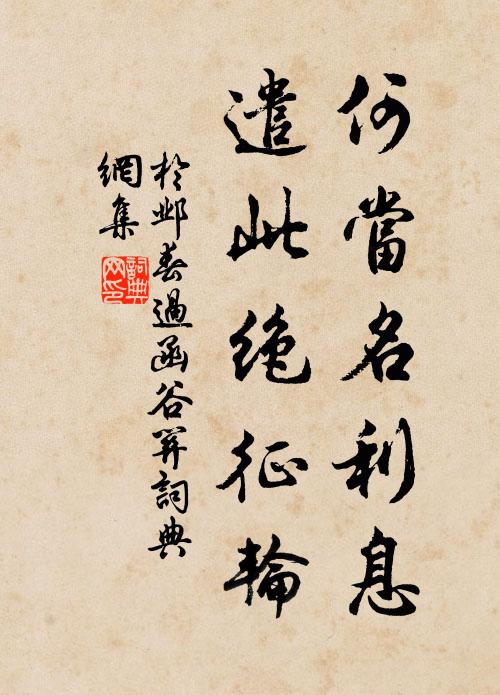 何當名利息
遣此絶征輪
於邺春過函谷關詞典
網集
詞典
网印